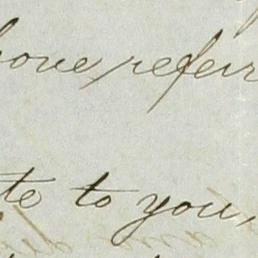 bove refer
te to you,